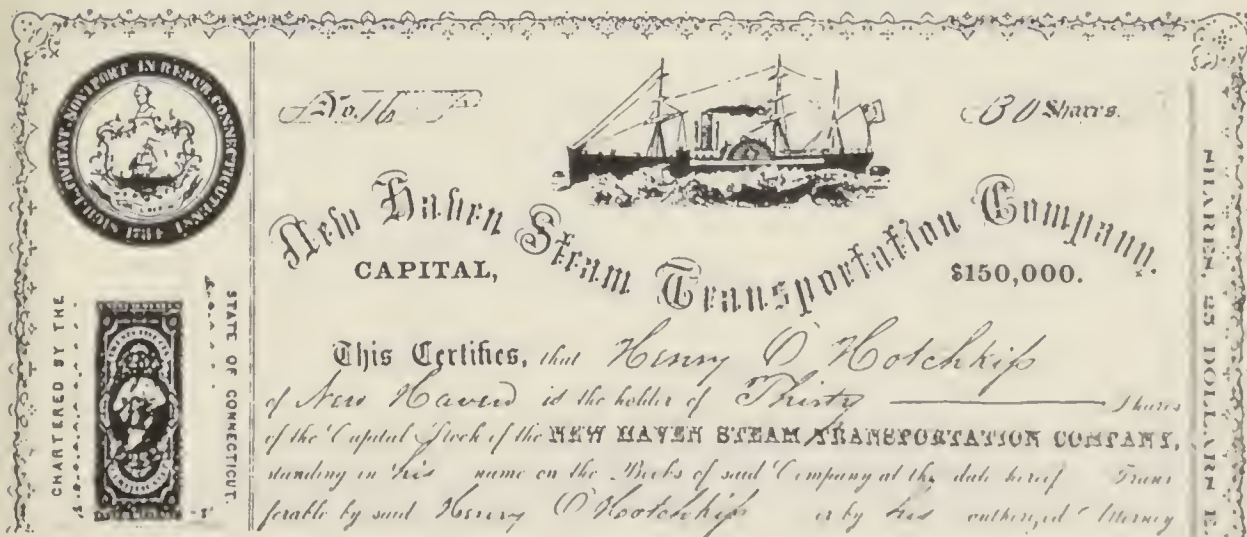 SIGILL. CIVITAT. NOVI PORT. IN REPUB. CONNECTICUTENSI 1784
No. 16
30 Shares.
New Haven Steam Transportation Company.
CAPITAL, $150,000.
This Certifies, that Henry O Hotchkiſs
of New Haven is the holder of Thirty Shares
of the Capital Stock of the NEW HAVEN STEAM TRANSPORTATION COMPANY,
standing in his name on the Books of said Company at the date hereof Trans
ferable by said Henry O Hotchkiſs or by his authorized Attorney
CHARTERED BY THE
STATE OF CONNECTICUT.
SHARES, 25 DOLLARS E